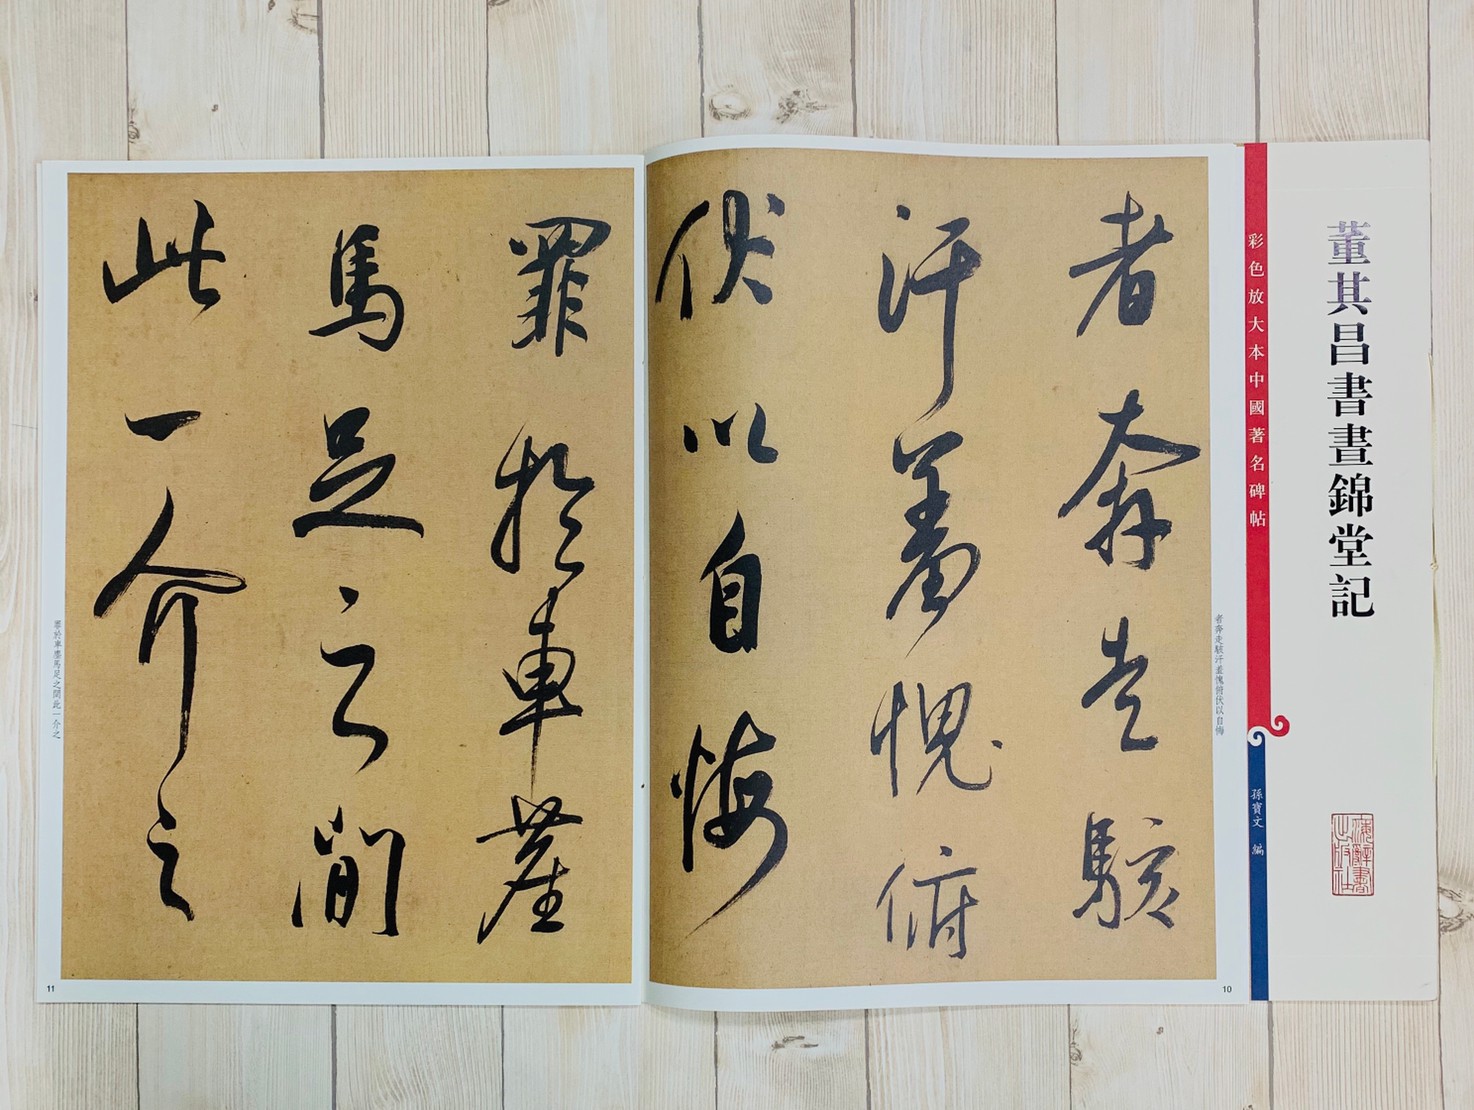 董其昌書晝錦堂記
彩色放大本中國著名碑帖
孫寶文 編
海辭書
出版社
者奔走駭汗羞愧俯伏以自悔
者奔走駭
汗羞愧俯
伏以自悔
10
罪於車塵
馬足之間
此一介之
罪於車塵馬足之間此一介之
11